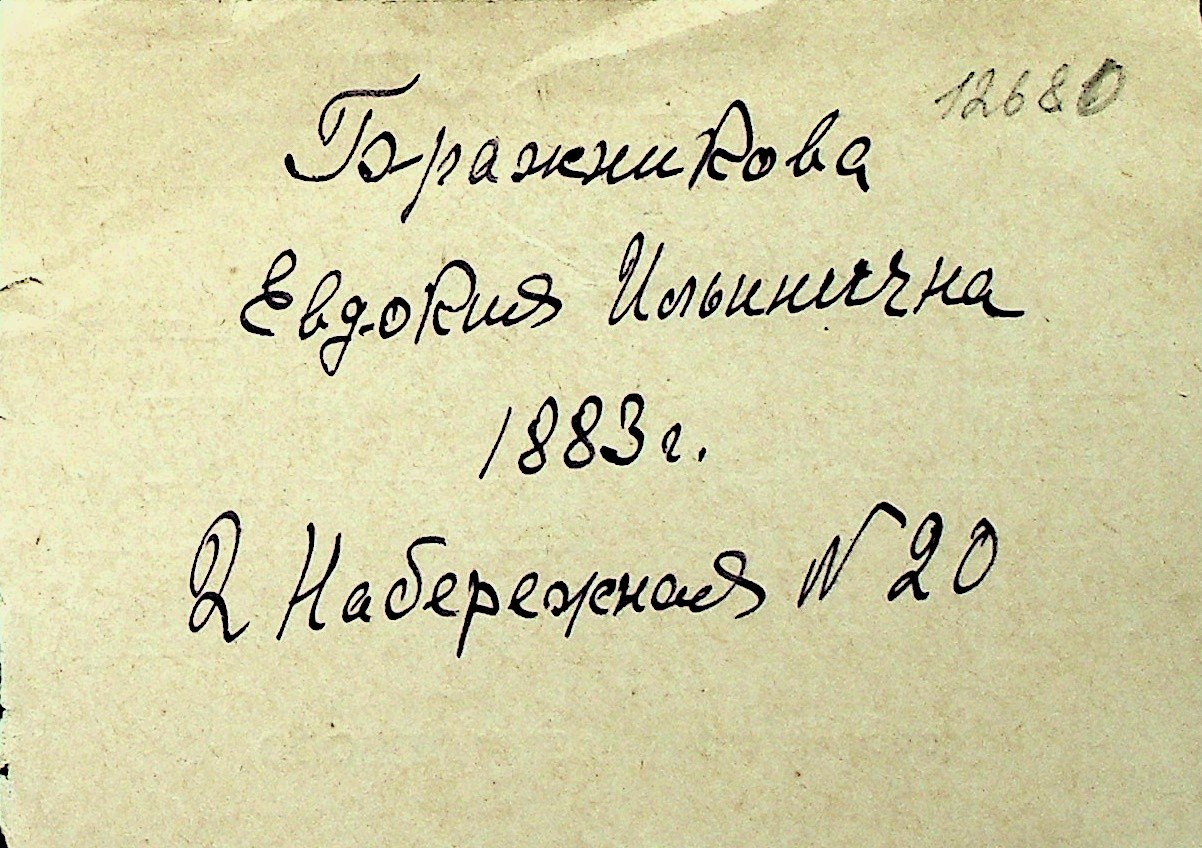 12680
Бражникова
Евдокия Ильинична
1883 г.
2 Набережная N 20